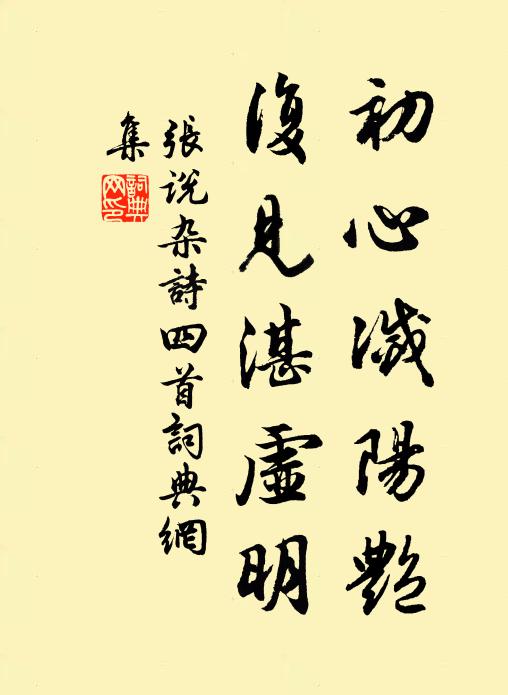 初心滅陽艷
復見湛虛明
張説杂詩四首詞典網
集
詞典網印